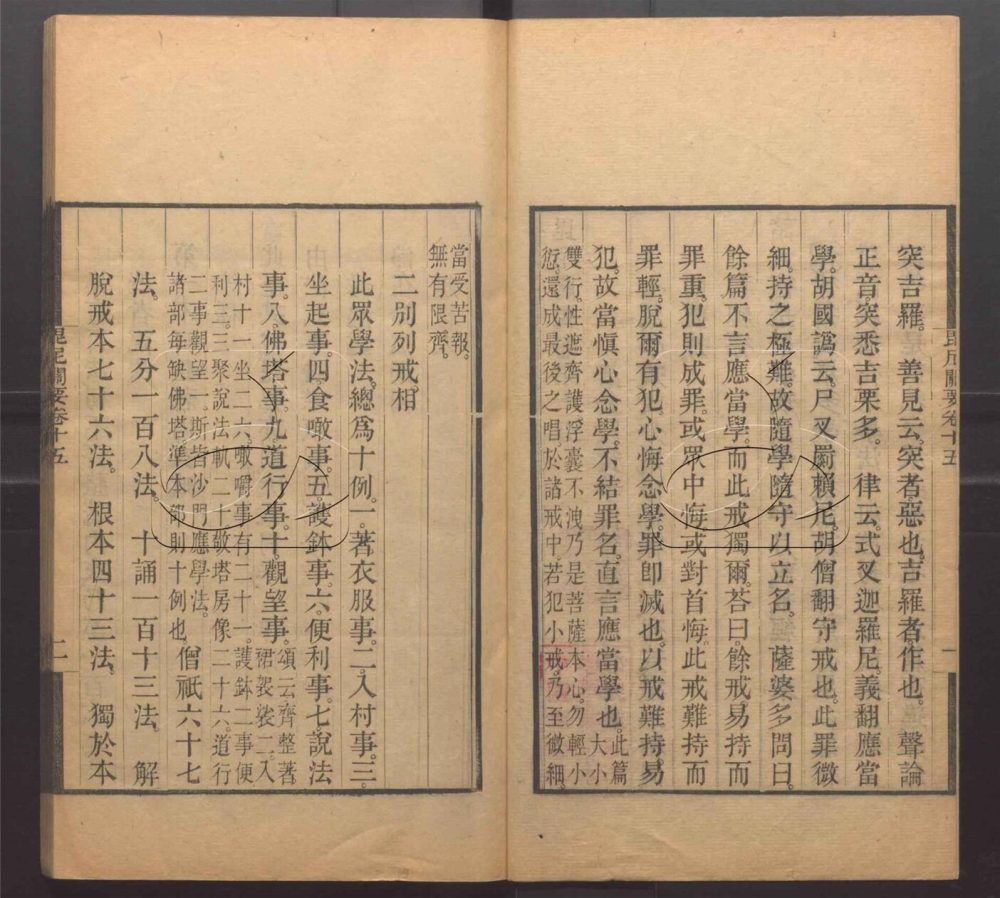 毘尼關要卷十五
一
突吉羅。　善見云。突者惡也。吉羅者。作也。　聲論
正音突悉吉栗多。　律云。式叉迦羅尼。義翻應當
學。胡國譌云。尸叉罽賴尼。胡僧翻守戒也。此罪微
細。持之極難。故隨學隨守以立名。　薩婆多問曰。
餘篇不言應當學。而此戒獨爾。荅曰。餘戒易持而
罪重。犯則成罪。或眾中悔。或對首悔。此戒難持而
罪輕。脫爾有犯。心悔念學。罪卽滅也。以戒難持。易
犯。故當愼心念學。不結罪名。直言應當學也。此篇大小
雙行。性遮齊護。浮囊不洩。乃是菩薩本心。勿輕小
愆。還成最後之唱。於諸戒中。若犯小戒。乃至微細。
當受苦報。
無有限齊。
二別列戒相
此眾學法。總爲十例。一。著衣服事。二。入村事。三。
坐起事。四。食噉事。五。護鉢事。六。便利事。七。說法
事。八。佛塔事。九。道行事。十。觀望事。頌云。齊整著裙袈裟二。入
村十一坐二六。噉嚼事有二十一。護鉢二事便
利三。三聚說法軌二十。敬塔房像二十六。道行
二事觀望一。斯皆沙門應學法。
諸部每缺佛塔。準本部則十例也。　僧祇六十七
法。　五分一百八法。　十誦一百十三法。　解
脫戒本七十六法。　根本四十三法。　獨於本
毘尼關要卷十五
二